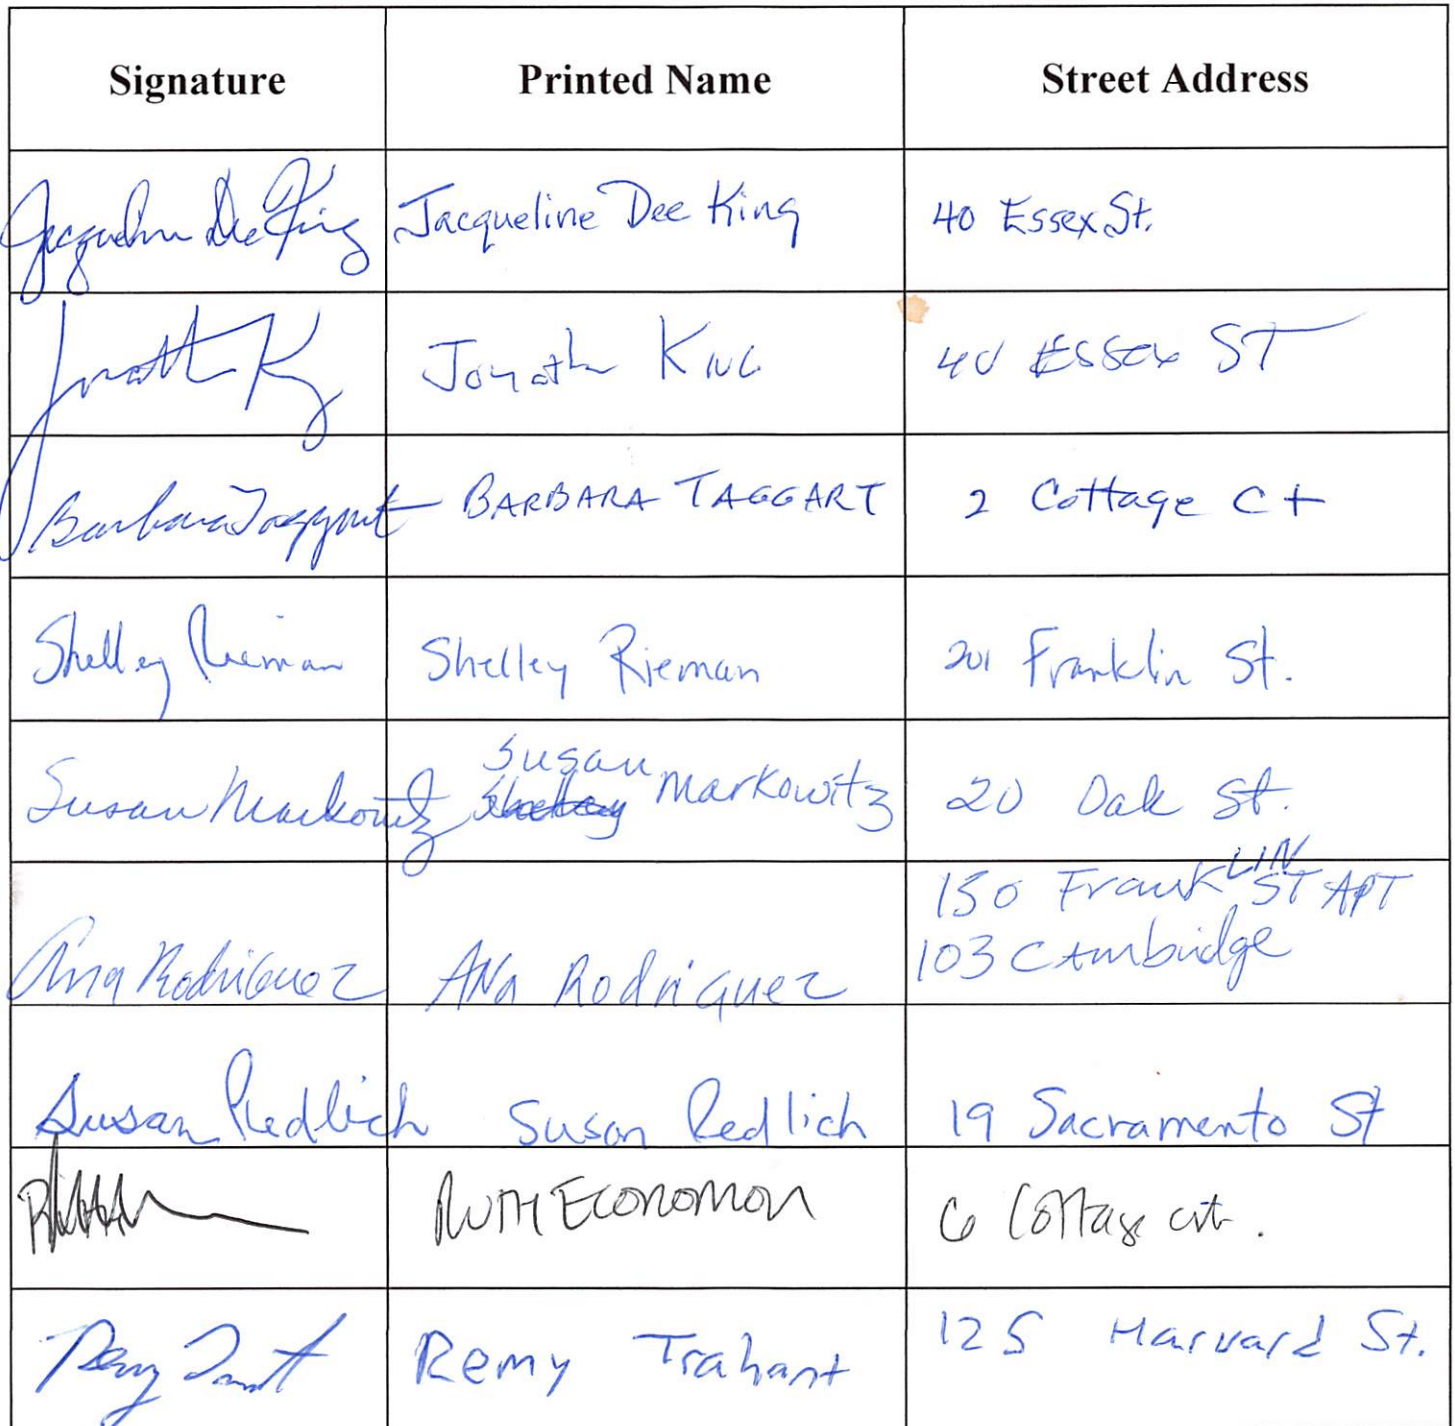 Signature Printed Name Street Address
Jacqueline Dee King Jacqueline Dee King 40 Essex St.
Jonathan K Jonathan King 40 Essex ST
Barbara Taggart BARBARA TAGGART 2 Cottage Ct
Shelley Rieman Shelley Rieman 201 Franklin St.
Susan
Susan Markowitz Shelley Markowitz 20 Oak St.
LIN
150 Frank ST APT
103 Cambridge
Ana Rodriguez ANA Rodriguez
Susan Redlich Susan Redlich 19 Sacramento St
RUTH ECONOMOU 6 Cottage crt.
Remy Trahant Remy Trahant 125 Harvard St.